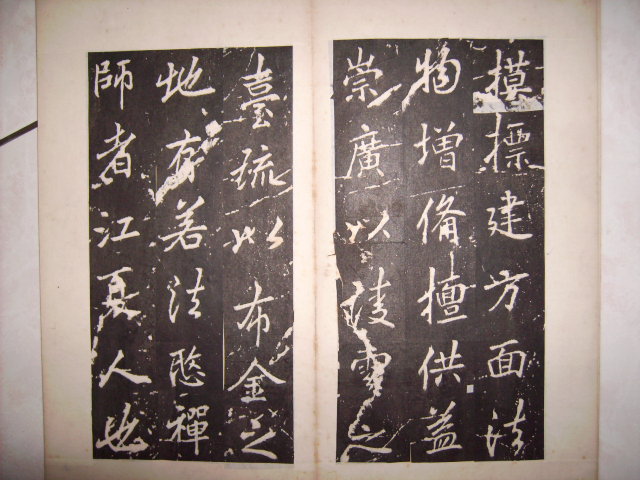 摸摽建方面法
物增備檀供益
崇廣以凌雲之
臺疏以布金之
地有若法愍禪
師者江夏人也